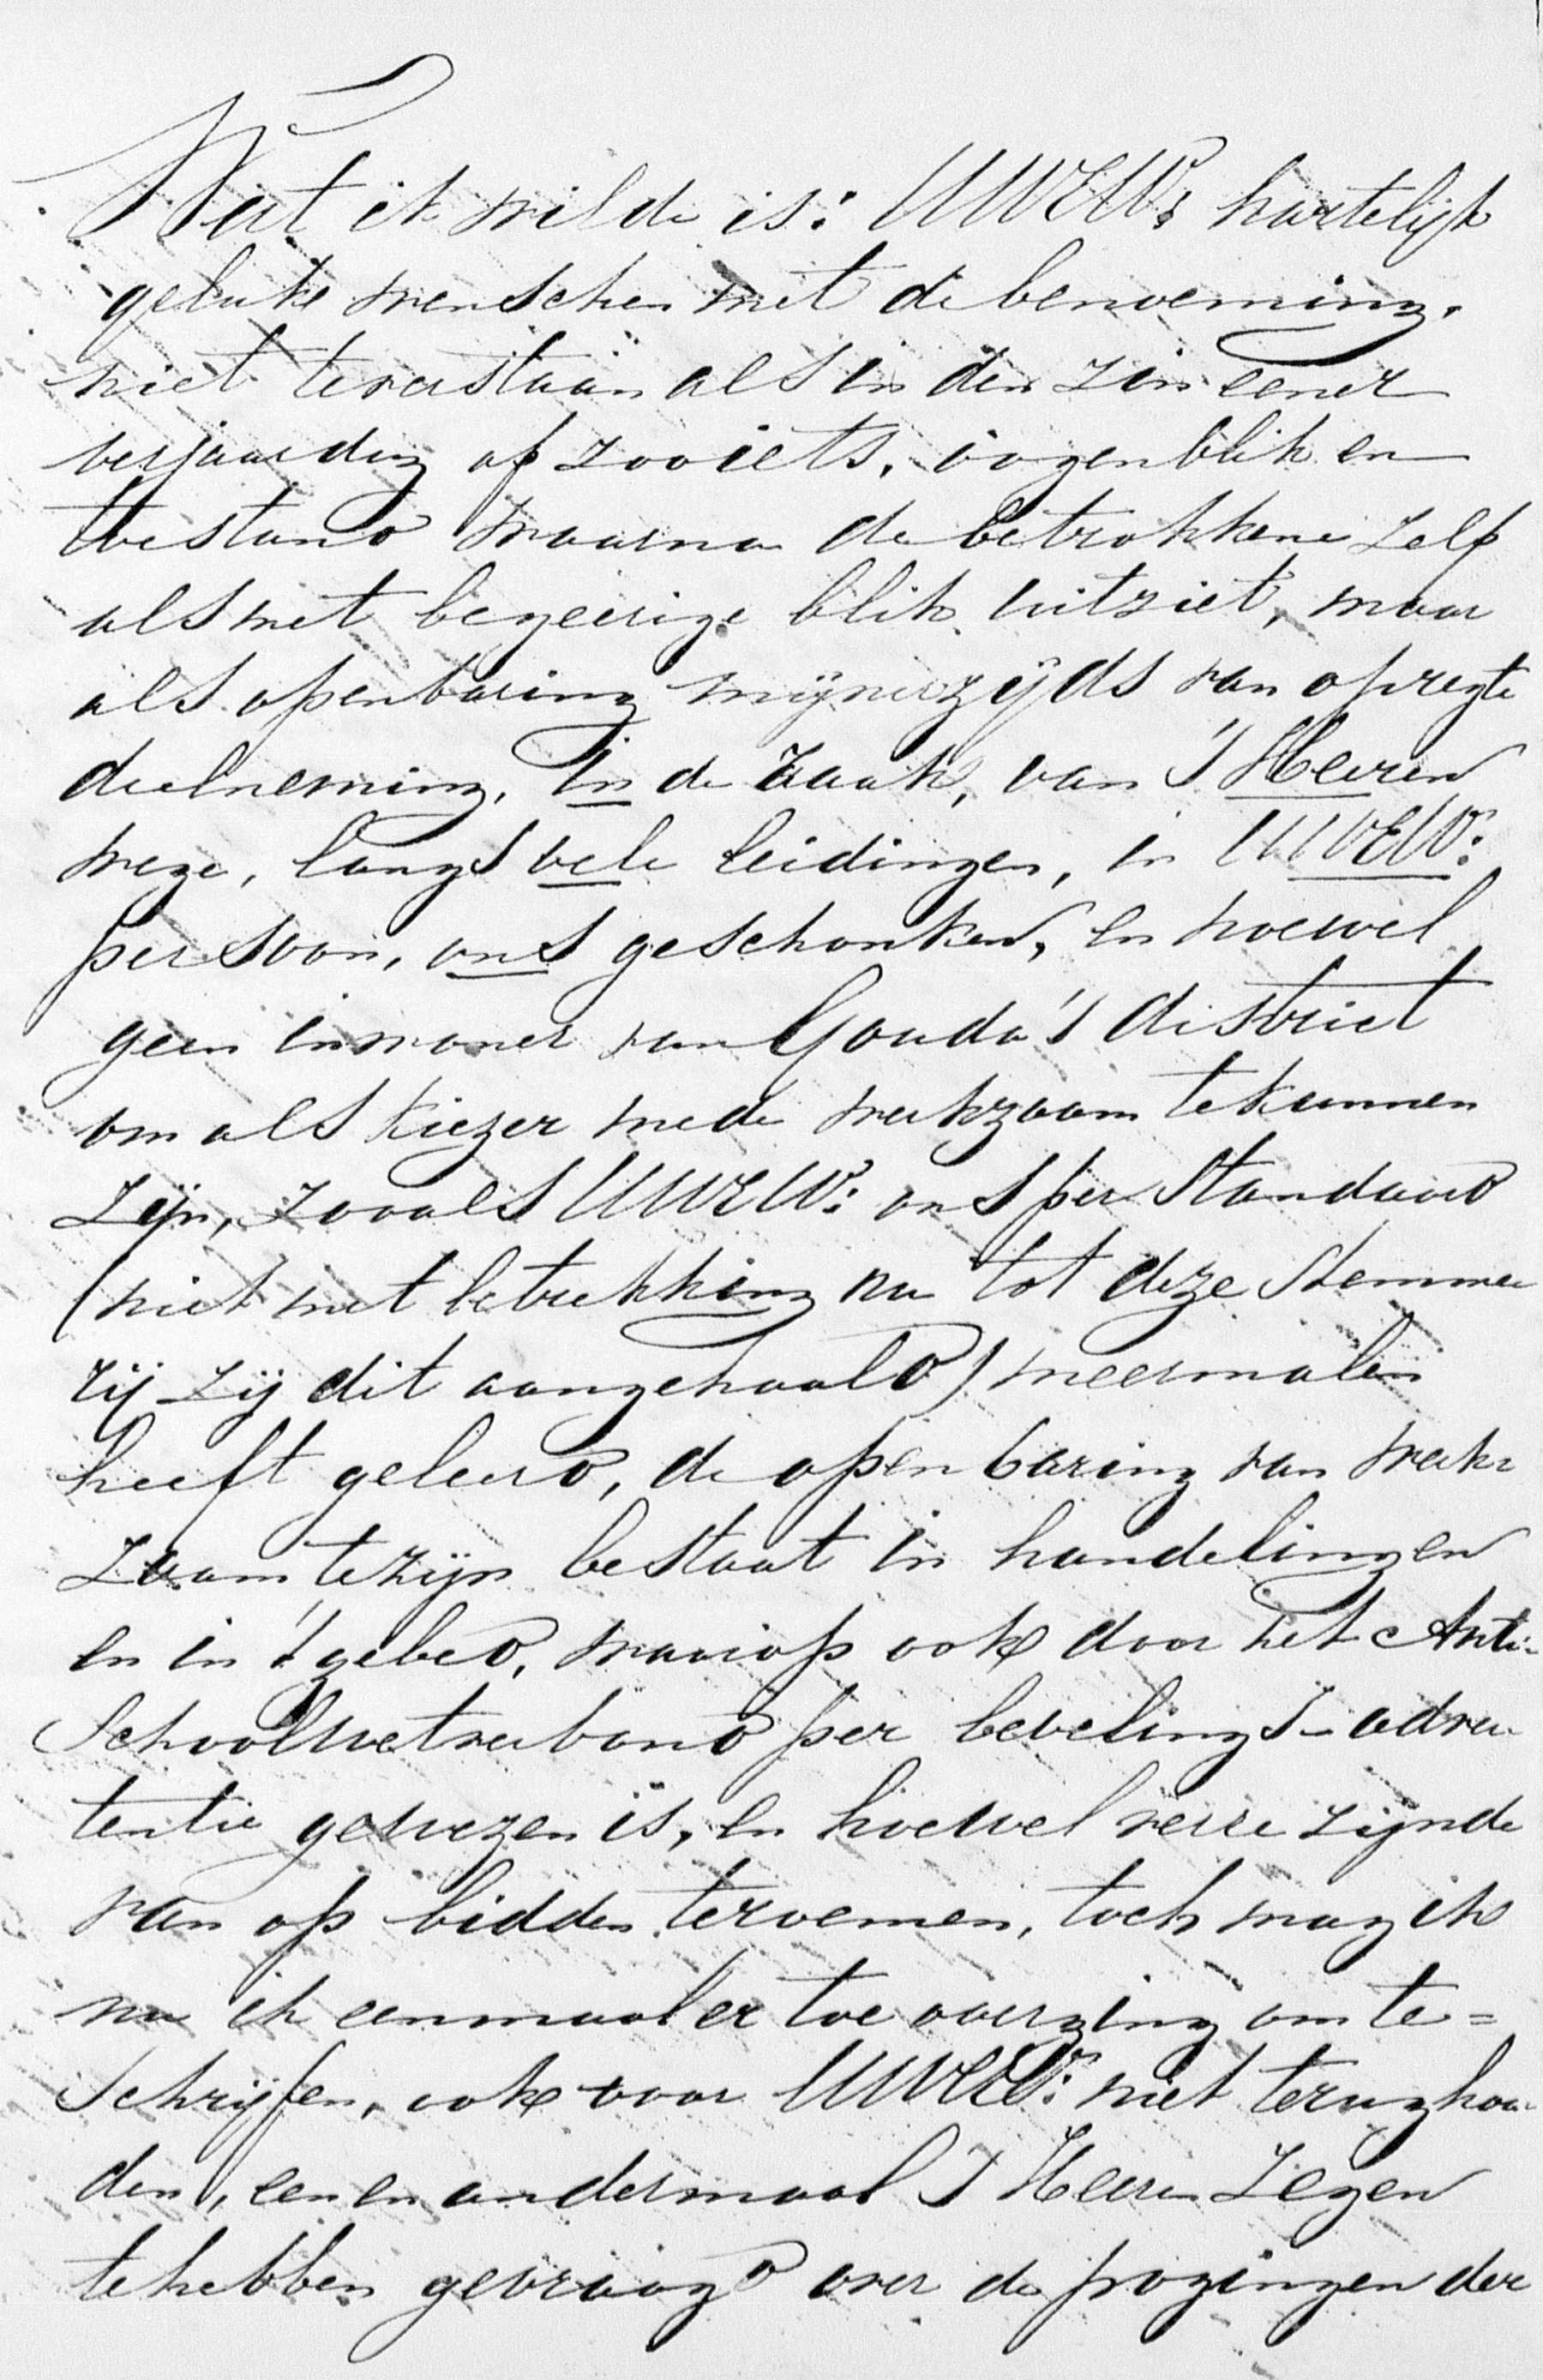 Wat ik wilde is: UWEW: hartelijk
geluke wenschen met de benoeming,
niet te verstaan als in den zin eener
verjaarding of zooiets, oogenblik en
toestand waarna de betrokkene zelf
als met begeerige blik uitziet, maar
als openbaring mijnerzyds van opregte
deelneming, in de zaak, van 's Heeren
wege, langs vele leidingen, in UWEW:
persoon, ons geschonken, en hoewel
geen inwoner van Gouda's district
om als kiezer mede werkzaam te kunnen
zijn, zooals UWEW: ons per Standaard
(niet met betrekking nu tot deze Stemme
rij zij dit aangehaald) meermalen
heeft geleerd, de openbaring van werk-
zaam te zijn bestaat in handelingen
en in 't gebed, waarop ook door het Anti-
Schoolwetverbond per bevelings-adver
tentie gewezen is, en hoewel verre zijnde
van op bidden te roemen, toch mag ik
nu ik eenmaal er toe overging om te=
Schrijfen, ook voor UWEW: niet terughou
den, een en andermaal 's Heeren Zegen
te hebben gevraagd over de pogingen der